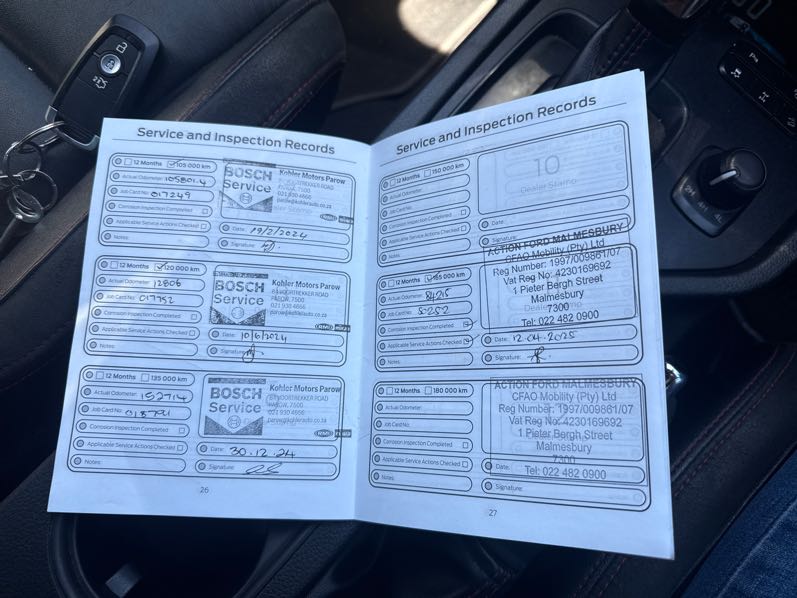 Service and Inspection Records
12 Months 105 000 km
Actual Odometer: 105801.4
Job Card No: 017249
Corrosion Inspection Completed
Applicable Service Actions Checked
Notes:
BOSCH
Service
Kohler Motors Parow
PAROW, 7500
021 930 4666
parow@kohlerauto.co.za
Date: 19/2/2024
Signature:
12 Months 120 000 km
Actual Odometer: 12806
Job Card No: 017752
Corrosion Inspection Completed
Applicable Service Actions Checked
Notes:
BOSCH
Service
Kohler Motors Parow
PAROW, 7500
021 930 4666
parow@kohlerauto.co.za
Date: 10/6/2024
Signature:
12 Months 135 000 km
Actual Odometer: 152714
Job Card No:
Corrosion Inspection Completed
Applicable Service Actions Checked
Notes:
BOSCH
Service
Kohler Motors Parow
PAROW, 7500
021 930 4666
parow@kohlerauto.co.za
Date: 30.12.24
Signature:
26
Service and Inspection Records
12 Months 150 000 km
Actual Odometer:
Job Card No:
Corrosion Inspection Completed
Applicable Service Actions Checked
Notes:
10
Dealer Stamp
Date:
Signature:
12 Months 165 000 km
Actual Odometer:
Job Card No:
Corrosion Inspection Completed
Applicable Service Actions Checked
Notes:
ACTION FORD MALMESBURY
CFAO Mobility (Pty) Ltd
Reg Number: 1997/009861/07
Vat Reg No: 4230169692
1 Pieter Bergh Street
Malmesbury
7300
Tel: 022 482 0900
Date: 12.04.2025
Signature:
12 Months 180 000 km
Actual Odometer:
Job Card No:
Corrosion Inspection Completed
Applicable Service Actions Checked
Notes:
ACTION FORD MALMESBURY
CFAO Mobility (Pty) Ltd
Reg Number: 1997/009861/07
Vat Reg No: 4230169692
1 Pieter Bergh Street
Malmesbury
7300
Tel: 022 482 0900
Date:
Signature:
27
2H 4H 4L